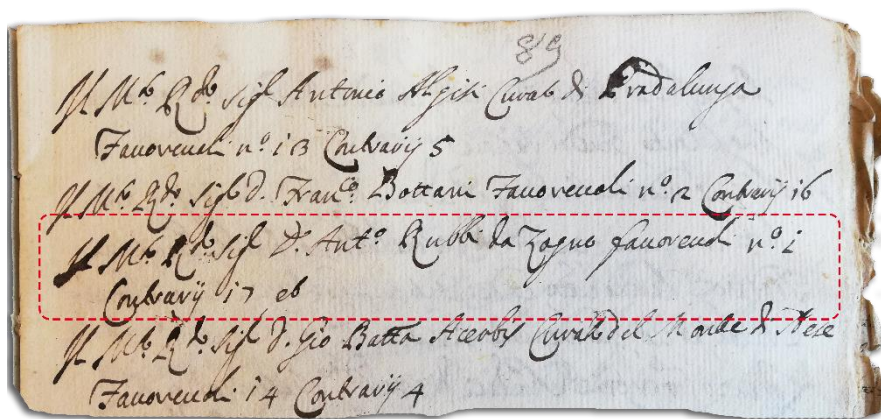 89
Il M.ᵗᵒ R.ᵈᵒ Sig.ʳ Antonio Algisi Curato di Pradalunga
Favorevoli n.º 13 Contrarij 5
Il M.ᵗᵒ R.ᵈᵒ Sig.ʳ D. Fran.ᶜᵒ Bottani Favorevoli n.º 2 Contrarij 16
Il M.ᵗᵒ R.ᵈᵒ Sig.ʳ D. Ant.º Rubbi da Zogno favorevoli n.º 1
Contrarij 17
Il M.ᵗᵒ R.ᵈᵒ Sig.ʳ D. Gio Batta Acerbis Curato del Monte di Nese
Favorevoli 14 Contrarij 4